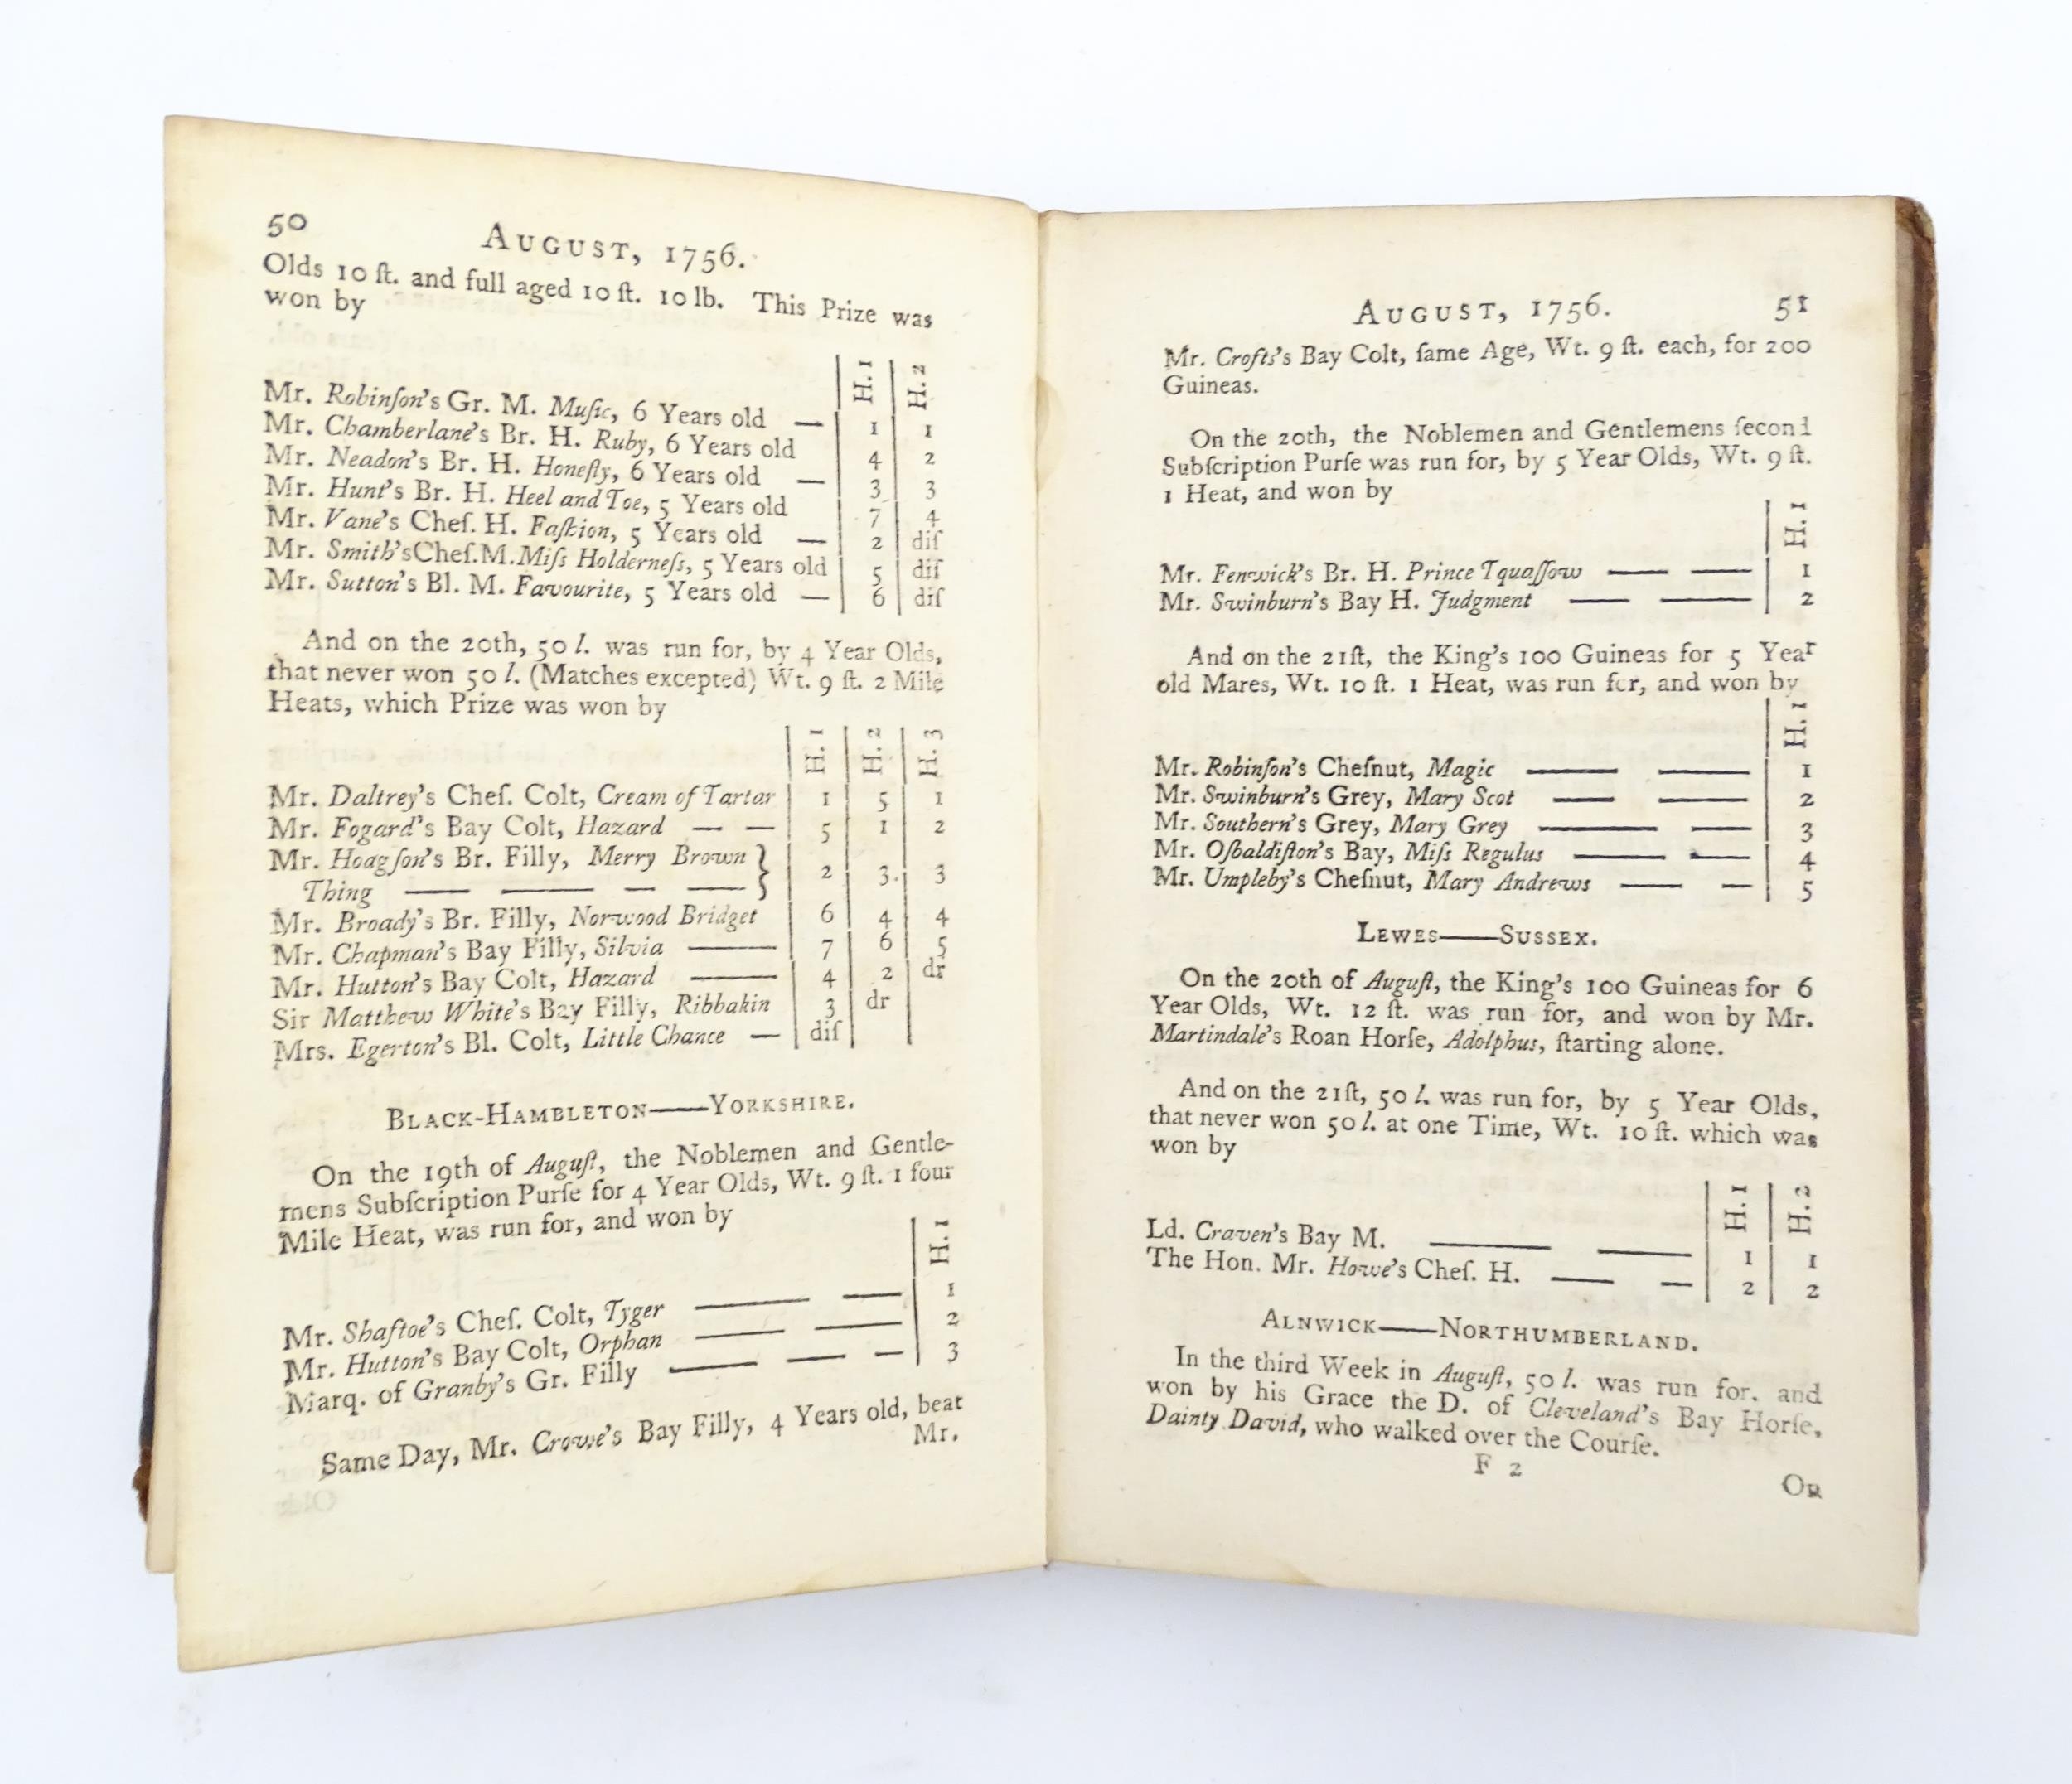 50
AUGUST, 1756.
Olds 10 ſt. and full aged 10 ſt. 10 lb. This Prize was
won by
H. 1 H. 2
Mr. Robinſon's Gr. M. Muſic, 6 Years old — 1 1
Mr. Chamberlane's Br. H. Ruby, 6 Years old 4 2
Mr. Neadon's Br. H. Honeſty, 6 Years old — 3 3
Mr. Hunt's Br. H. Heel and Toe, 5 Years old 7 4
Mr. Vane's Cheſ. H. Faſhion, 5 Years old — 2 diſ
Mr. Smith's Cheſ. M. Miſs Holderneſs, 5 Years old 5 diſ
Mr. Sutton's Bl. M. Favourite, 5 Years old — 6 diſ
And on the 20th, 50 l. was run for, by 4 Year Olds,
that never won 50 l. (Matches excepted) Wt. 9 ſt. 2 Mile
Heats, which Prize was won by
H. 1 H. 2 H. 3
Mr. Daltrey's Cheſ. Colt, Cream of Tartar 1 5 1
Mr. Fogard's Bay Colt, Hazard — — 5 1 2
Mr. Hoagſon's Br. Filly, Merry Brown }
Thing — — — — 2 3 3
Mr. Broady's Br. Filly, Norwood Bridget 6 4 4
Mr. Chapman's Bay Filly, Silvia — 7 6 5
Mr. Hutton's Bay Colt, Hazard — 4 2 dr
Sir Matthew White's Bay Filly, Ribbakin 3 dr
Mrs. Egerton's Bl. Colt, Little Chance — diſ
BLACK-HAMBLETON——YORKSHIRE.
On the 19th of Auguſt, the Noblemen and Gentle-
mens Subſcription Purſe for 4 Year Olds, Wt. 9 ſt. 1 four
Mile Heat, was run for, and won by
H. 1
Mr. Shaftoe's Cheſ. Colt, Tyger — — 1
Mr. Hutton's Bay Colt, Orphan — — 2
Marq. of Granby's Gr. Filly — — — 3
Same Day, Mr. Crowe's Bay Filly, 4 Years old, beat
Mr.
AUGUST, 1756. 51
Mr. Crofts's Bay Colt, ſame Age, Wt. 9 ſt. each, for 200
Guineas.
On the 20th, the Noblemen and Gentlemens ſecond
Subſcription Purſe was run for, by 5 Year Olds, Wt. 9 ſt.
1 Heat, and won by
H. 1
Mr. Fenwick's Br. H. Prince Tquaſſow — — 1
Mr. Swinburn's Bay H. Judgment — — 2
And on the 21ſt, the King's 100 Guineas for 5 Year
old Mares, Wt. 10 ſt. 1 Heat, was run for, and won by
H. 1
Mr. Robinſon's Cheſnut, Magic — — 1
Mr. Swinburn's Grey, Mary Scot — — 2
Mr. Southern's Grey, Mary Grey — — 3
Mr. Oſbaldiſton's Bay, Miſs Regulus — — 4
Mr. Umpleby's Cheſnut, Mary Andrews — — 5
LEWES——SUSSEX.
On the 20th of Auguſt, the King's 100 Guineas for 6
Year Olds, Wt. 12 ſt. was run for, and won by Mr.
Martindale's Roan Horſe, Adolphus, ſtarting alone.
And on the 21ſt, 50 l. was run for, by 5 Year Olds,
that never won 50 l. at one Time, Wt. 10 ſt. which was
won by
H. 1 H. 2
Ld. Craven's Bay M. — — 1 1
The Hon. Mr. Howe's Cheſ. H. — — 2 2
ALNWICK——NORTHUMBERLAND.
In the third Week in Auguſt, 50 l. was run for. and
won by his Grace the D. of Cleveland's Bay Horſe,
Dainty David, who walked over the Courſe.
F 2
On